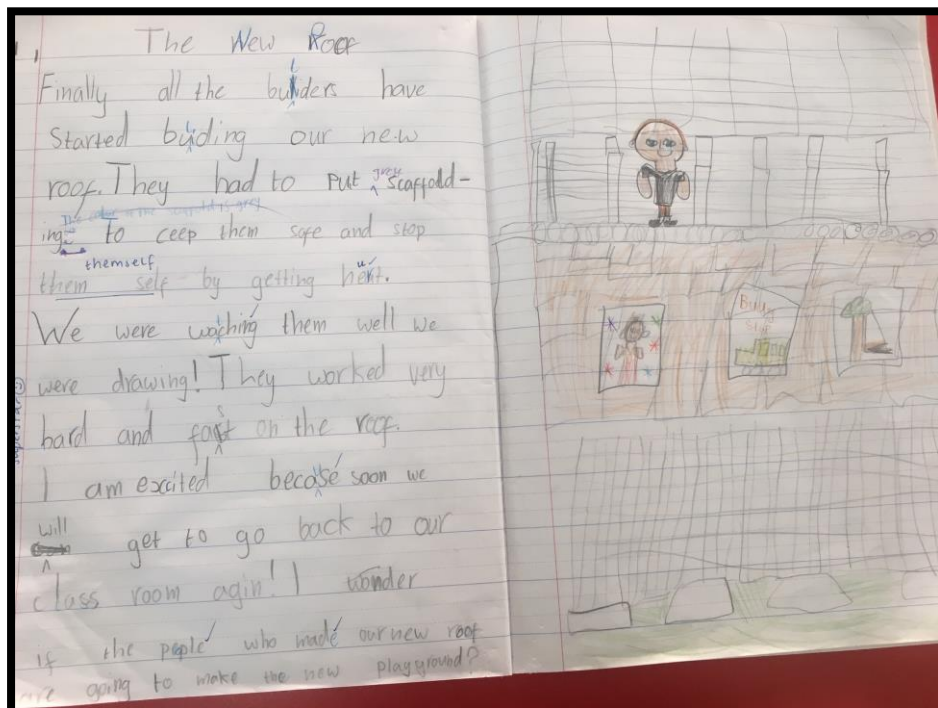 The New Roof
Finally all the builders have
Started building our new
roof. They had to put grey scaffold-
ing. The color of the scaffold is grey
To ceep them safe and stop
themself
them self by getting hurt.
We were watching them well we
were drawing! They worked very
hard and fast on the roof.
I am excited because soon we
will
get to go back to our
class room agin! I wonder
if the people who made our new roof
are going to make the new playground?
superstar